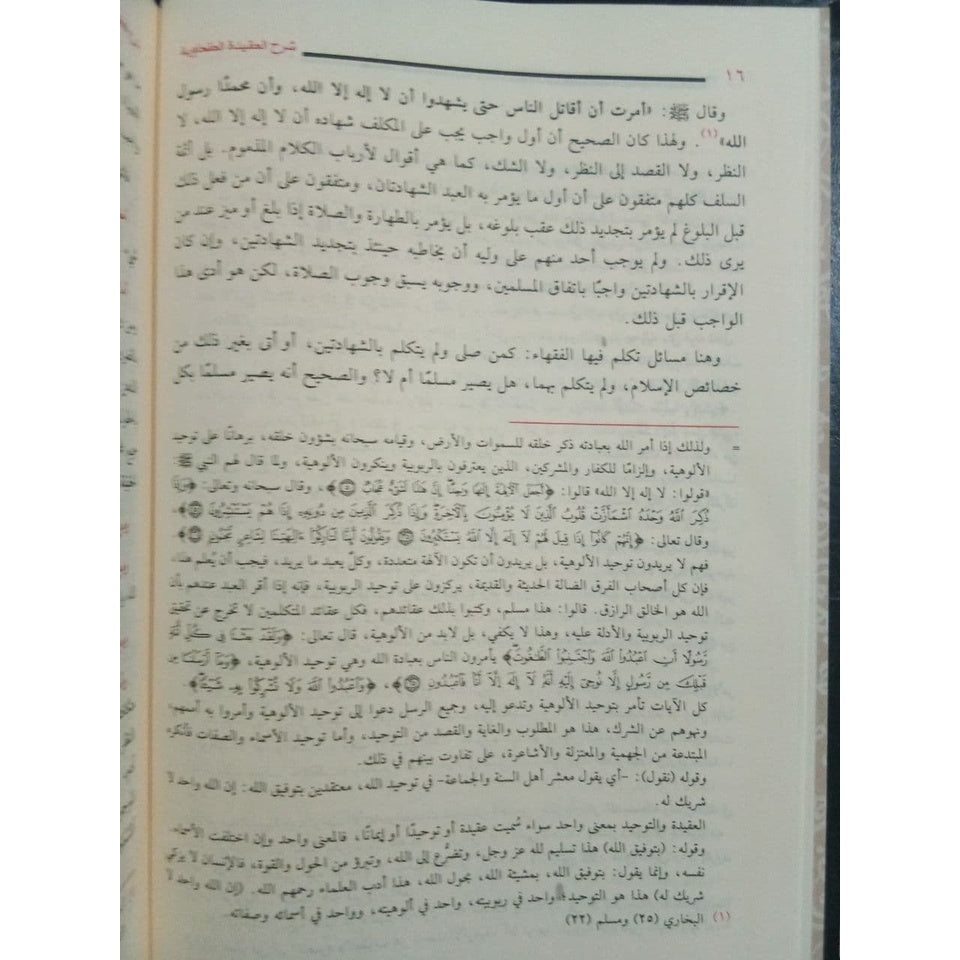 شرح العقيدة الطحاوية
١٦
وقال ﷺ: «أمرت أن أقاتل الناس حتى يشهدوا أن لا إله إلا الله، وأن محمدًا رسول
الله»(١). ولهذا كان الصحيح أن أول واجب يجب على المكلف شهاده أن لا إله إلا الله، لا
النظر، ولا القصد إلى النظر، ولا الشك، كما هي أقوال لأرباب الكلام المذموم. بل أئمة
السلف كلهم متفقون على أن أول ما يؤمر به العبد الشهادتان، ومتفقون على أن من فعل ذلك
قبل البلوغ لم يؤمر بتجديد ذلك عقب بلوغه، بل يؤمر بالطهارة والصلاة إذا بلغ أو ميز عند من
يرى ذلك. ولم يوجب أحد منهم على وليه أن يخاطبه حينئذ بتجديد الشهادتين، وإن كان
الإقرار بالشهادتين واجبًا باتفاق المسلمين، ووجوبه يسبق وجوب الصلاة، لكن هو أدى هذا
الواجب قبل ذلك.
وهنا مسائل تكلم فيها الفقهاء: كمن صلى ولم يتكلم بالشهادتين، أو أتى بغير ذلك من
خصائص الإسلام، ولم يتكلم بهما، هل يصير مسلمًا أم لا؟ والصحيح أنه يصير مسلمًا بكل
= ولذلك إذا أمر الله بعبادته ذكر خلقه للسموات والأرض، وقيامه سبحانه بشؤون خلقه، برهانًا على توحيد
الألوهية، وإلزامًا للكفار والمشركين، الذين يعترفون بالربوبية وينكرون الألوهية، ولما قال لهم النبي ﷺ:
«قولوا: لا إله إلا الله» قالوا: ﴿أَجَعَلَ ٱلْءَالِهَةَ إِلَٰهًا وَٰحِدًا إِنَّ هَٰذَا لَشَىْءٌ عُجَابٌ ۝٥﴾، وقال سبحانه وتعالى: ﴿وَإِذَا
ذُكِرَ ٱللَّهُ وَحْدَهُ ٱشْمَأَزَّتْ قُلُوبُ ٱلَّذِينَ لَا يُؤْمِنُونَ بِٱلْءَاخِرَةِ وَإِذَا ذُكِرَ ٱلَّذِينَ مِن دُونِهِۦٓ إِذَا هُمْ يَسْتَبْشِرُونَ ۝٤٥﴾،
وقال تعالى: ﴿إِنَّهُمْ كَانُوٓا۟ إِذَا قِيلَ لَهُمْ لَآ إِلَٰهَ إِلَّا ٱللَّهُ يَسْتَكْبِرُونَ ۝٣٥ وَيَقُولُونَ أَئِنَّا لَتَارِكُوٓا۟ ءَالِهَتِنَا لِشَاعِرٍ مَّجْنُونٍ ۝٣٦﴾
فهم لا يريدون توحيد الألوهية، بل يريدون أن تكون الآلهة متعددة، وكلٌ يعبد ما يريد، فيجب أن يُعلم هذا،
فإن كل أصحاب الفرق الضالة الحديثة والقديمة، يركزون على توحيد الربوبية، فإنه إذا أقر العبد عندهم بأن
الله هو الخالق الرازق. قالوا: هذا مسلم، وكتبوا بذلك عقائدهم، فكل عقائد المتكلمين لا تخرج عن تحقيق
توحيد الربوبية والأدلة عليه، وهذا لا يكفي، بل لابد من الألوهية، قال تعالى: ﴿وَلَقَدْ بَعَثْنَا فِى كُلِّ أُمَّةٍ
رَّسُولًا أَنِ ٱعْبُدُوا۟ ٱللَّهَ وَٱجْتَنِبُوا۟ ٱلطَّٰغُوتَ﴾ يأمرون الناس بعبادة الله وهي توحيد الألوهية، ﴿وَمَآ أَرْسَلْنَا مِن
قَبْلِكَ مِن رَّسُولٍ إِلَّا نُوحِىٓ إِلَيْهِ أَنَّهُۥ لَآ إِلَٰهَ إِلَّآ أَنَا۠ فَٱعْبُدُونِ ۝٢٥﴾، ﴿وَٱعْبُدُوا۟ ٱللَّهَ وَلَا تُشْرِكُوا۟ بِهِۦ شَيْـًٔا﴾.
كل الآيات تأمر بتوحيد الألوهية وتدعو إليه، وجميع الرسل دعوا إلى توحيد الألوهية وأمروا به أممهم،
ونهوهم عن الشرك، هذا هو المطلوب والغاية والقصد من التوحيد، وأما توحيد الأسماء والصفات فأنكره
المبتدعة من الجهمية والمعتزلة والأشاعرة، على تفاوت بينهم في ذلك.
وقوله (نقول): -أي يقول معشر أهل السنة والجماعة- في توحيد الله، معتقدين بتوفيق الله: إن الله واحد لا
شريك له.
العقيدة والتوحيد بمعنى واحد سواء سُميت عقيدة أو توحيدًا أو إيمانًا، فالمعنى واحد وإن اختلفت الأسماء.
وقوله: (بتوفيق الله) هذا تسليم لله عز وجل، وتضرُّع إلى الله، وتبرؤ من الحول والقوة، فالإنسان لا يزكي
نفسه، وإنما يقول: بتوفيق الله، بمشيئة الله، بحول الله، هذا أدب العلماء رحمهم الله. (إن الله واحد لا
شريك له) هذا هو التوحيد، واحد في ربوبيته، واحد في ألوهيته، وواحد في أسمائه وصفاته.
(١) البخاري (٢٥) ومسلم (٢٢)